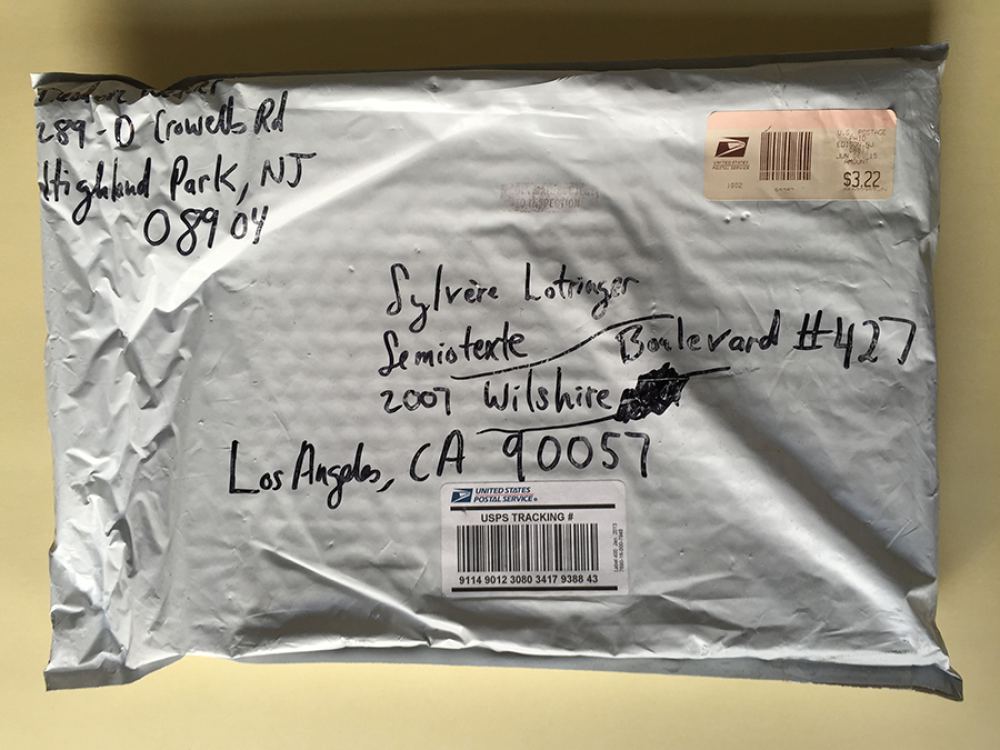 289-D Crowells Rd
Highland Park, NJ
08904
UNITED STATES
POSTAL SERVICE
1002
U.S. POSTAGE
EDISON, NJ
AMOUNT
$3.22
TO INSPECTION
Sylvère Lotringer
Semiotexte
2007 Wilshire Boulevard #427
Los Angeles, CA 90057
UNITED STATES
POSTAL SERVICE®
USPS TRACKING #
9114 9012 3080 3417 9388 43